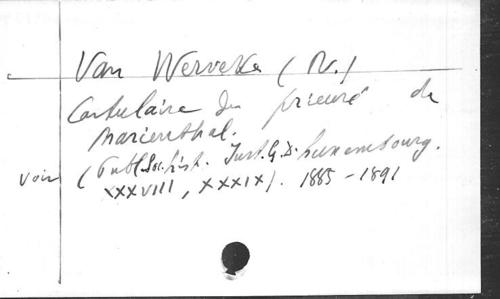 Van Werveke (N.)
Cartulaire du prieuré de
Marienthal.
(Publ. Soc. hist. Inst. G. D. Luxembourg.
voir XXXVIII, XXXIX). 1885-1891